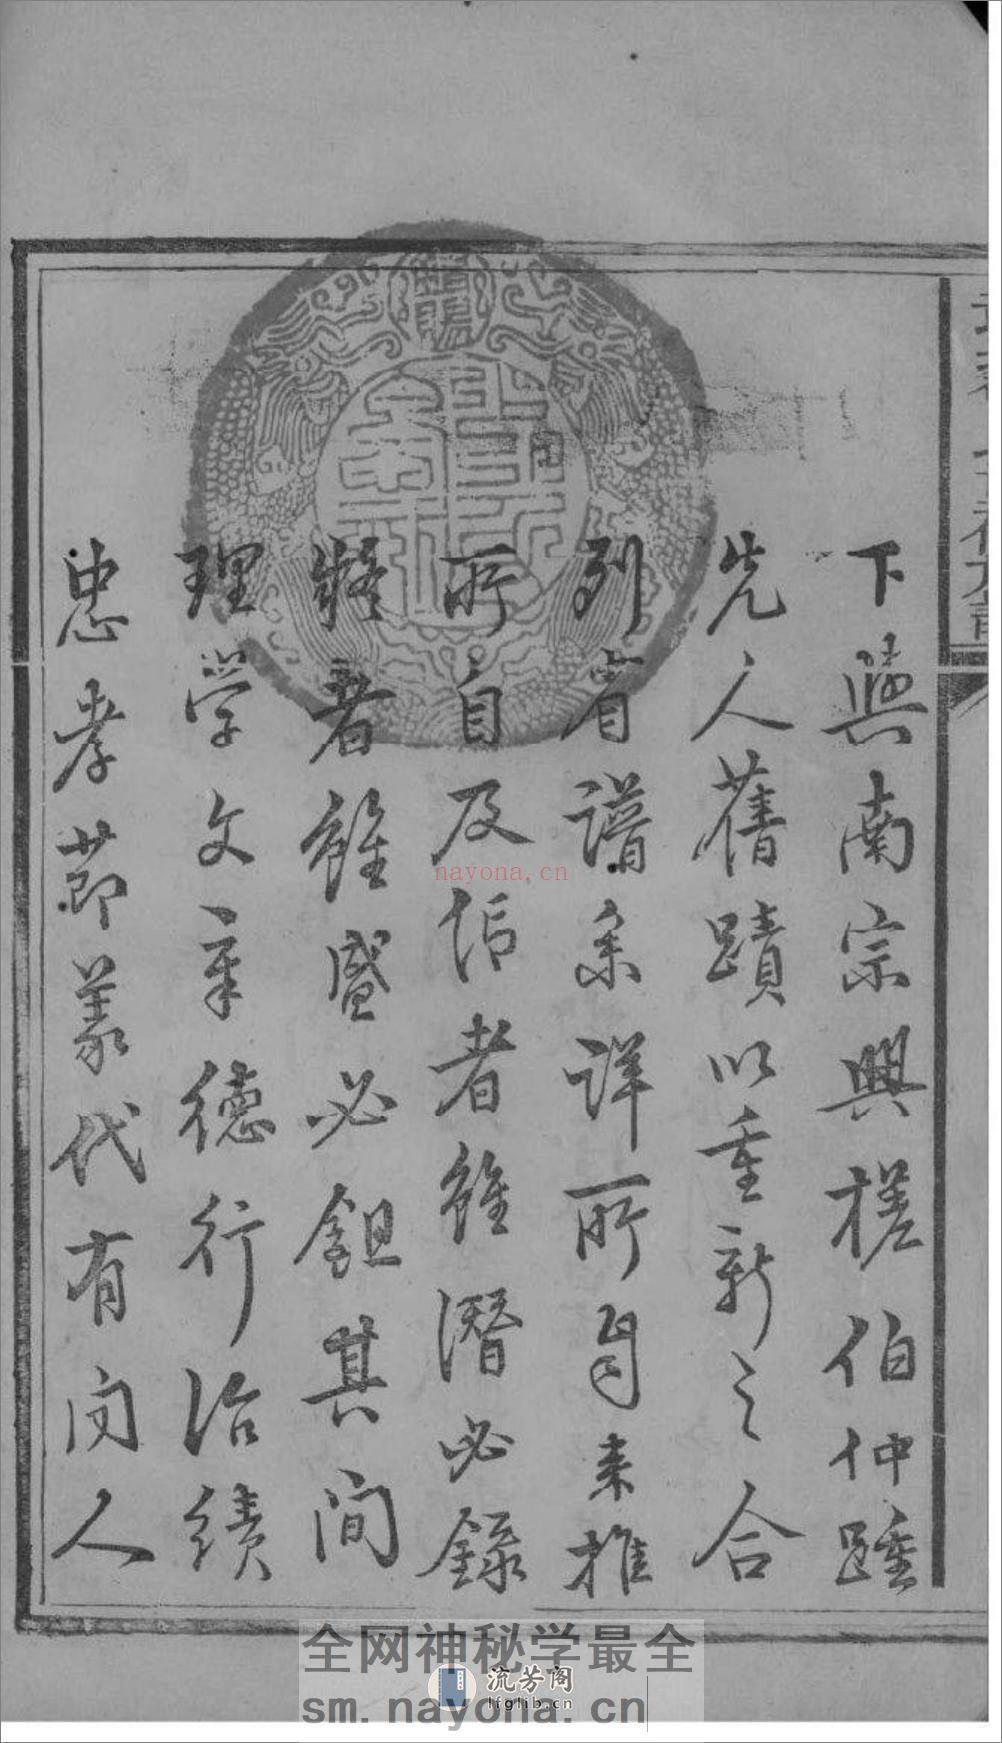 下與南宗興槎伯仲踵
先人舊蹟以重新之合
列省譜系詳所自来推
所自及信者雖潛必錄
疑者雖盛必鉏其間
理学文章德行治績
忠孝節義代有闻人
nayona.cn
全网神秘学最全
流芳阁
lfglib.cn
sm.nayona.cn